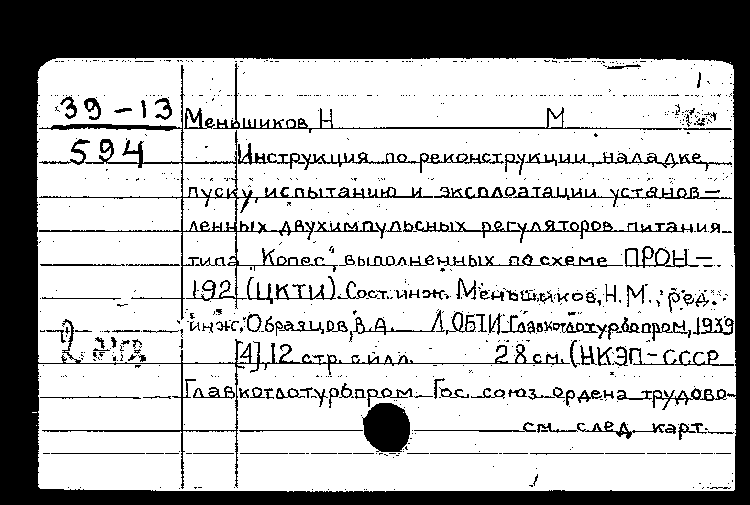 39-13
594
Меньшиков, Н М
Инструкция по реконструкции, наладке,
пуску, испытанию и эксплоатации установ-
ленных двухимпульсных регуляторов питания
типа "Копес", выполненных по схеме ПРОН-
192 (ЦКТИ). Сост. инж. Меньшиков, Н.М.; ред.
инж. Образцов, В.А. Л, ОБТИ Главкотлотурбопром, 1939
[4], 12 стр. с илл. 28 см. (НКЭП-СССР
2 экз
Главкотлотурбпром. Гос. союз. ордена трудово-
см. след. карт.